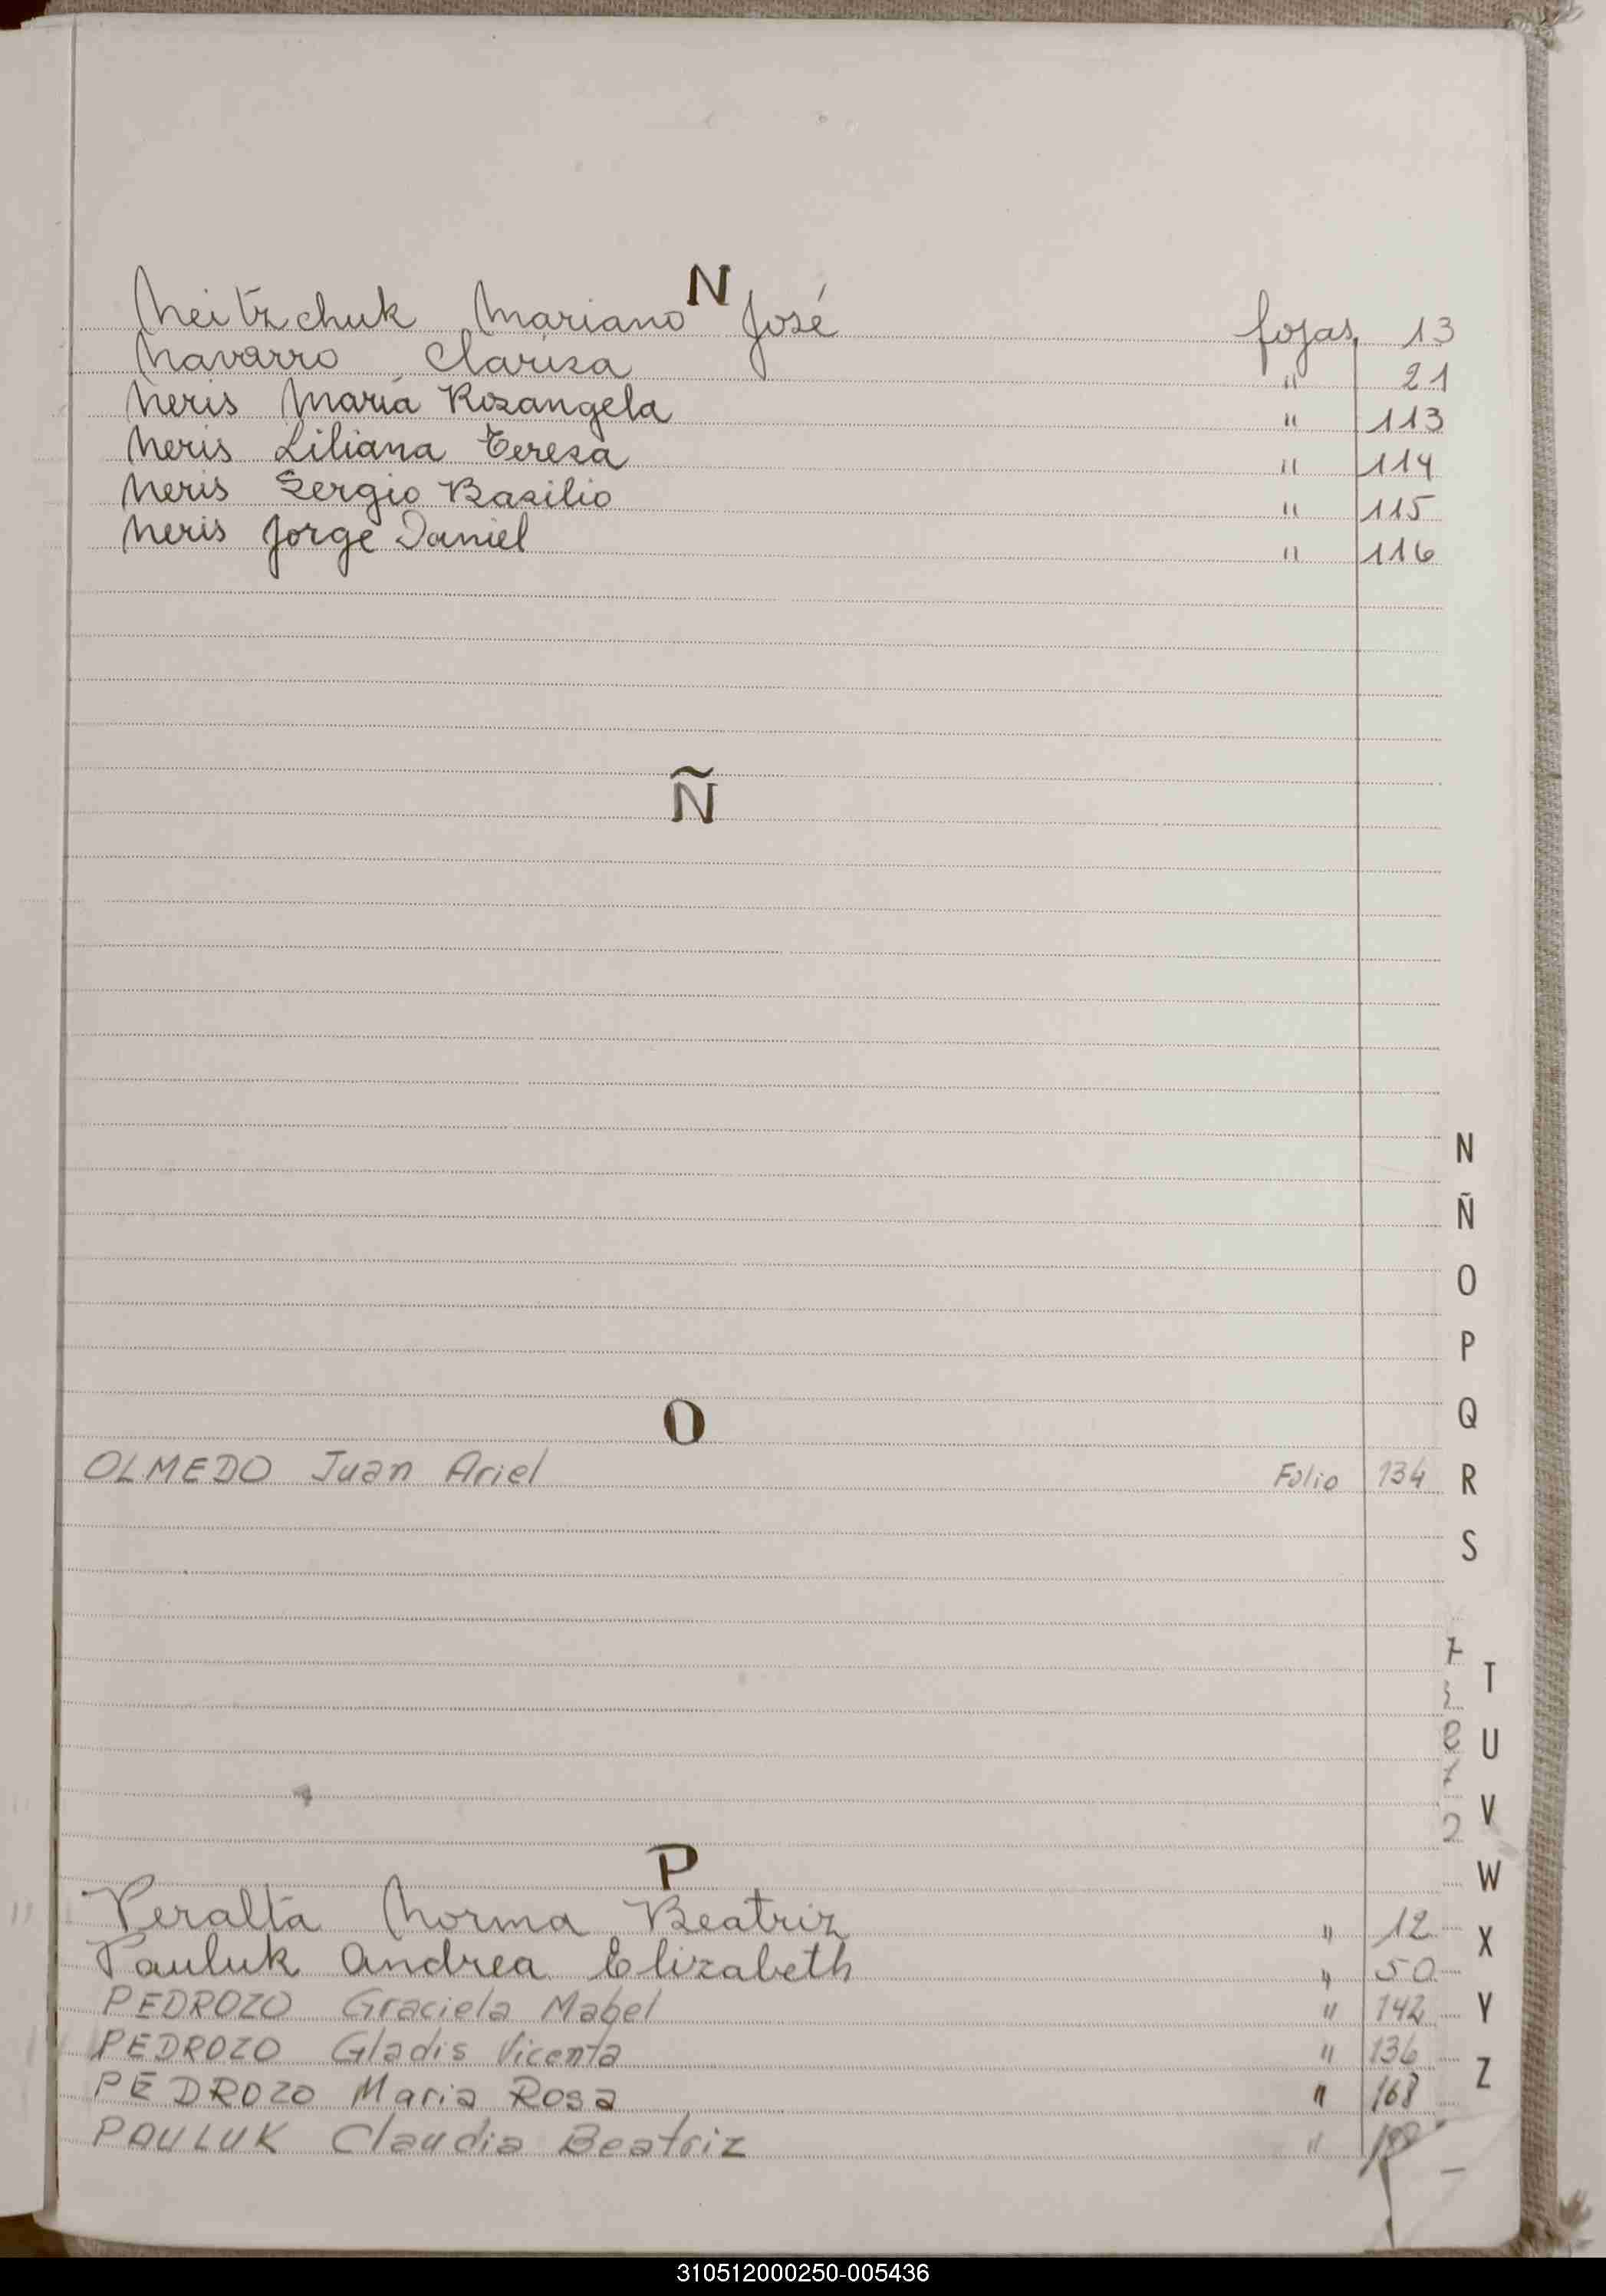 N
Neitzchuk Mariano José fojas 13
Navarro Clarisa " 21
Neris María Rosangela " 113
Neris Liliana Teresa " 114
Neris Sergio Basilio " 115
Neris Jorge Daniel " 116
Ñ
O
OLMEDO Juan Ariel Folio 134
P
Peralta Norma Beatriz " 12
Pauluk Andrea Elizabeth " 50
PEDROZO Graciela Mabel " 142
PEDROZO Gladis Vicenta " 136
PEDROZO Maria Rosa " 168
PAULUK Claudia Beatriz "
N
Ñ
O
P
Q
R
S
T
U
V
W
X
Y
Z
310512000250-005436